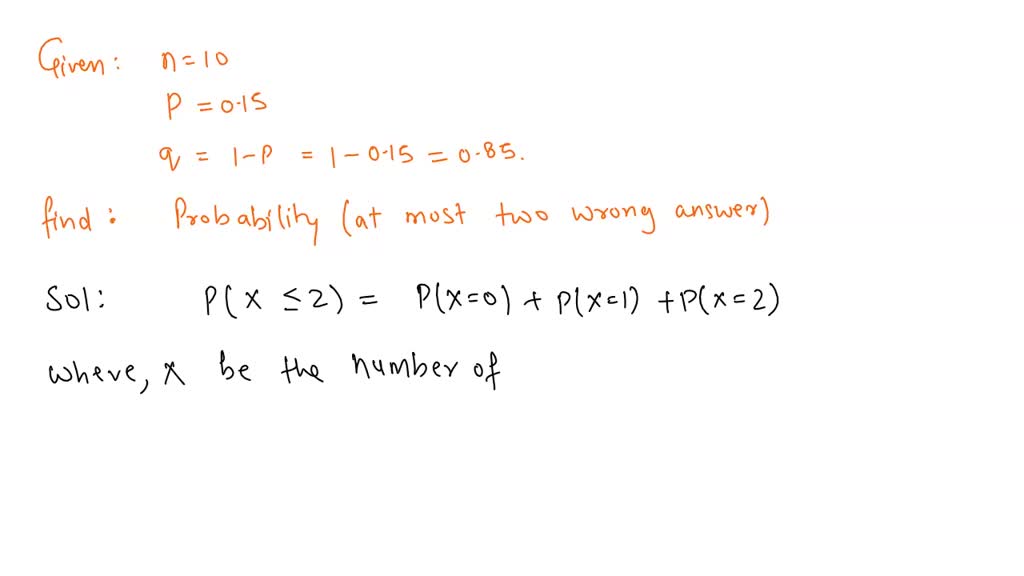 Given: n=10
P = 0.15
q = 1-P = 1-0.15 = 0.85.
find: Probability (at most two wrong answer)
Sol: P(x ≤2) = P(x=0) + P(x=1) +P(x=2)
where, x be the number of